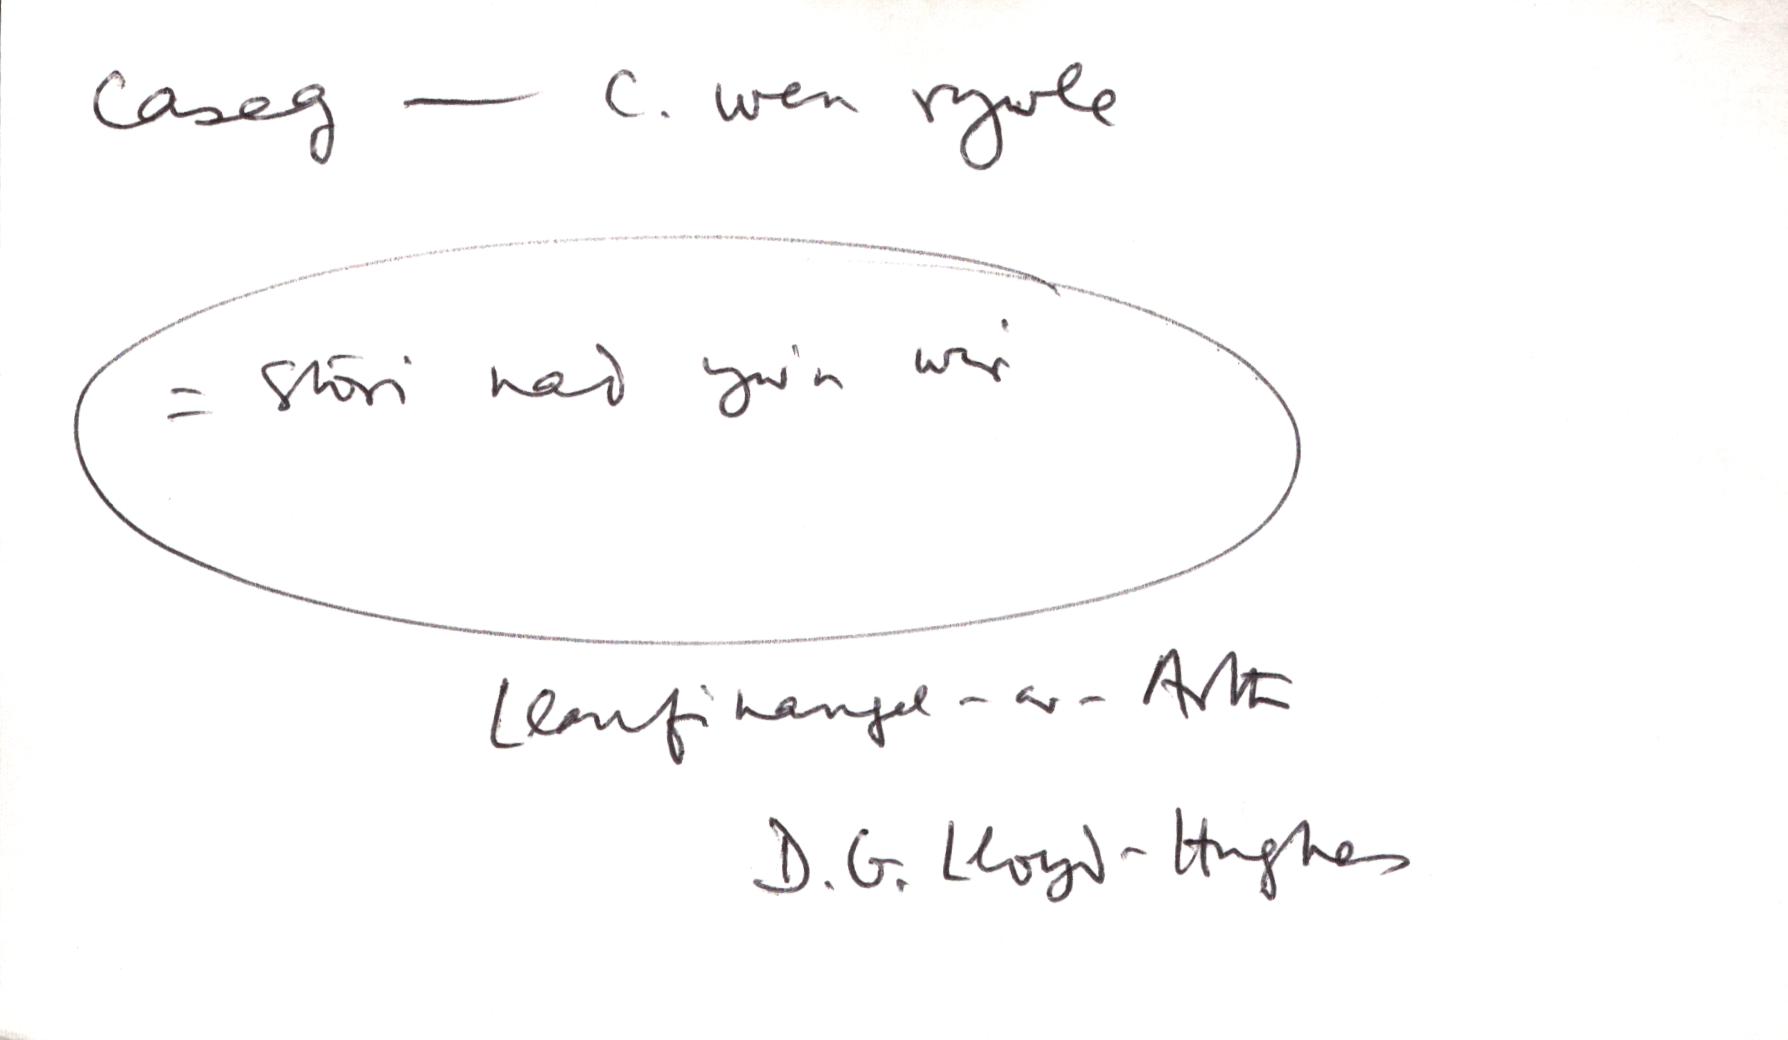 Caseg — C. wen rywle
= Stori nad yw'n wir
Llanfihangel-ar-Arth
D. G. Lloyd-Hughes